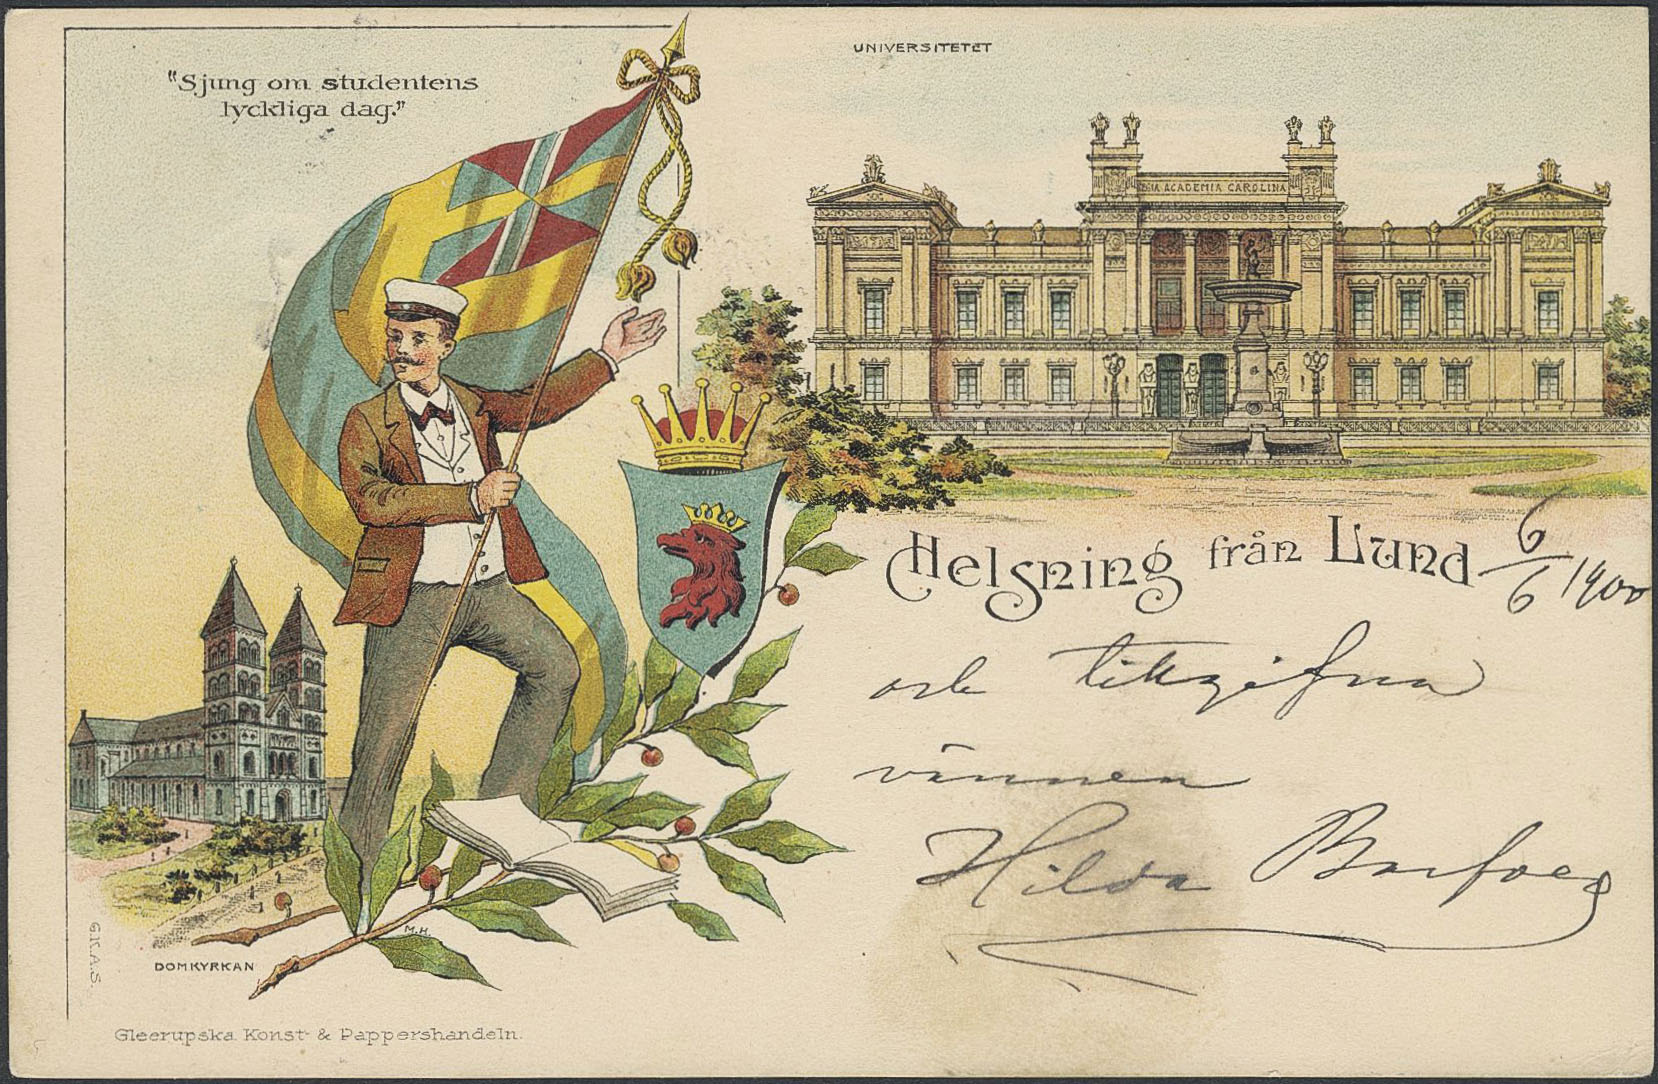 "Sjung om studentens
lyckliga dag."
UNIVERSITETET
ACADEMIA CAROLINA
Helsning från Lund 6/6 1900
och
vännen
Hilda
DOMKYRKAN
M.H.
G.K.A.S.
Gleerupska Konst- & Pappershandeln.